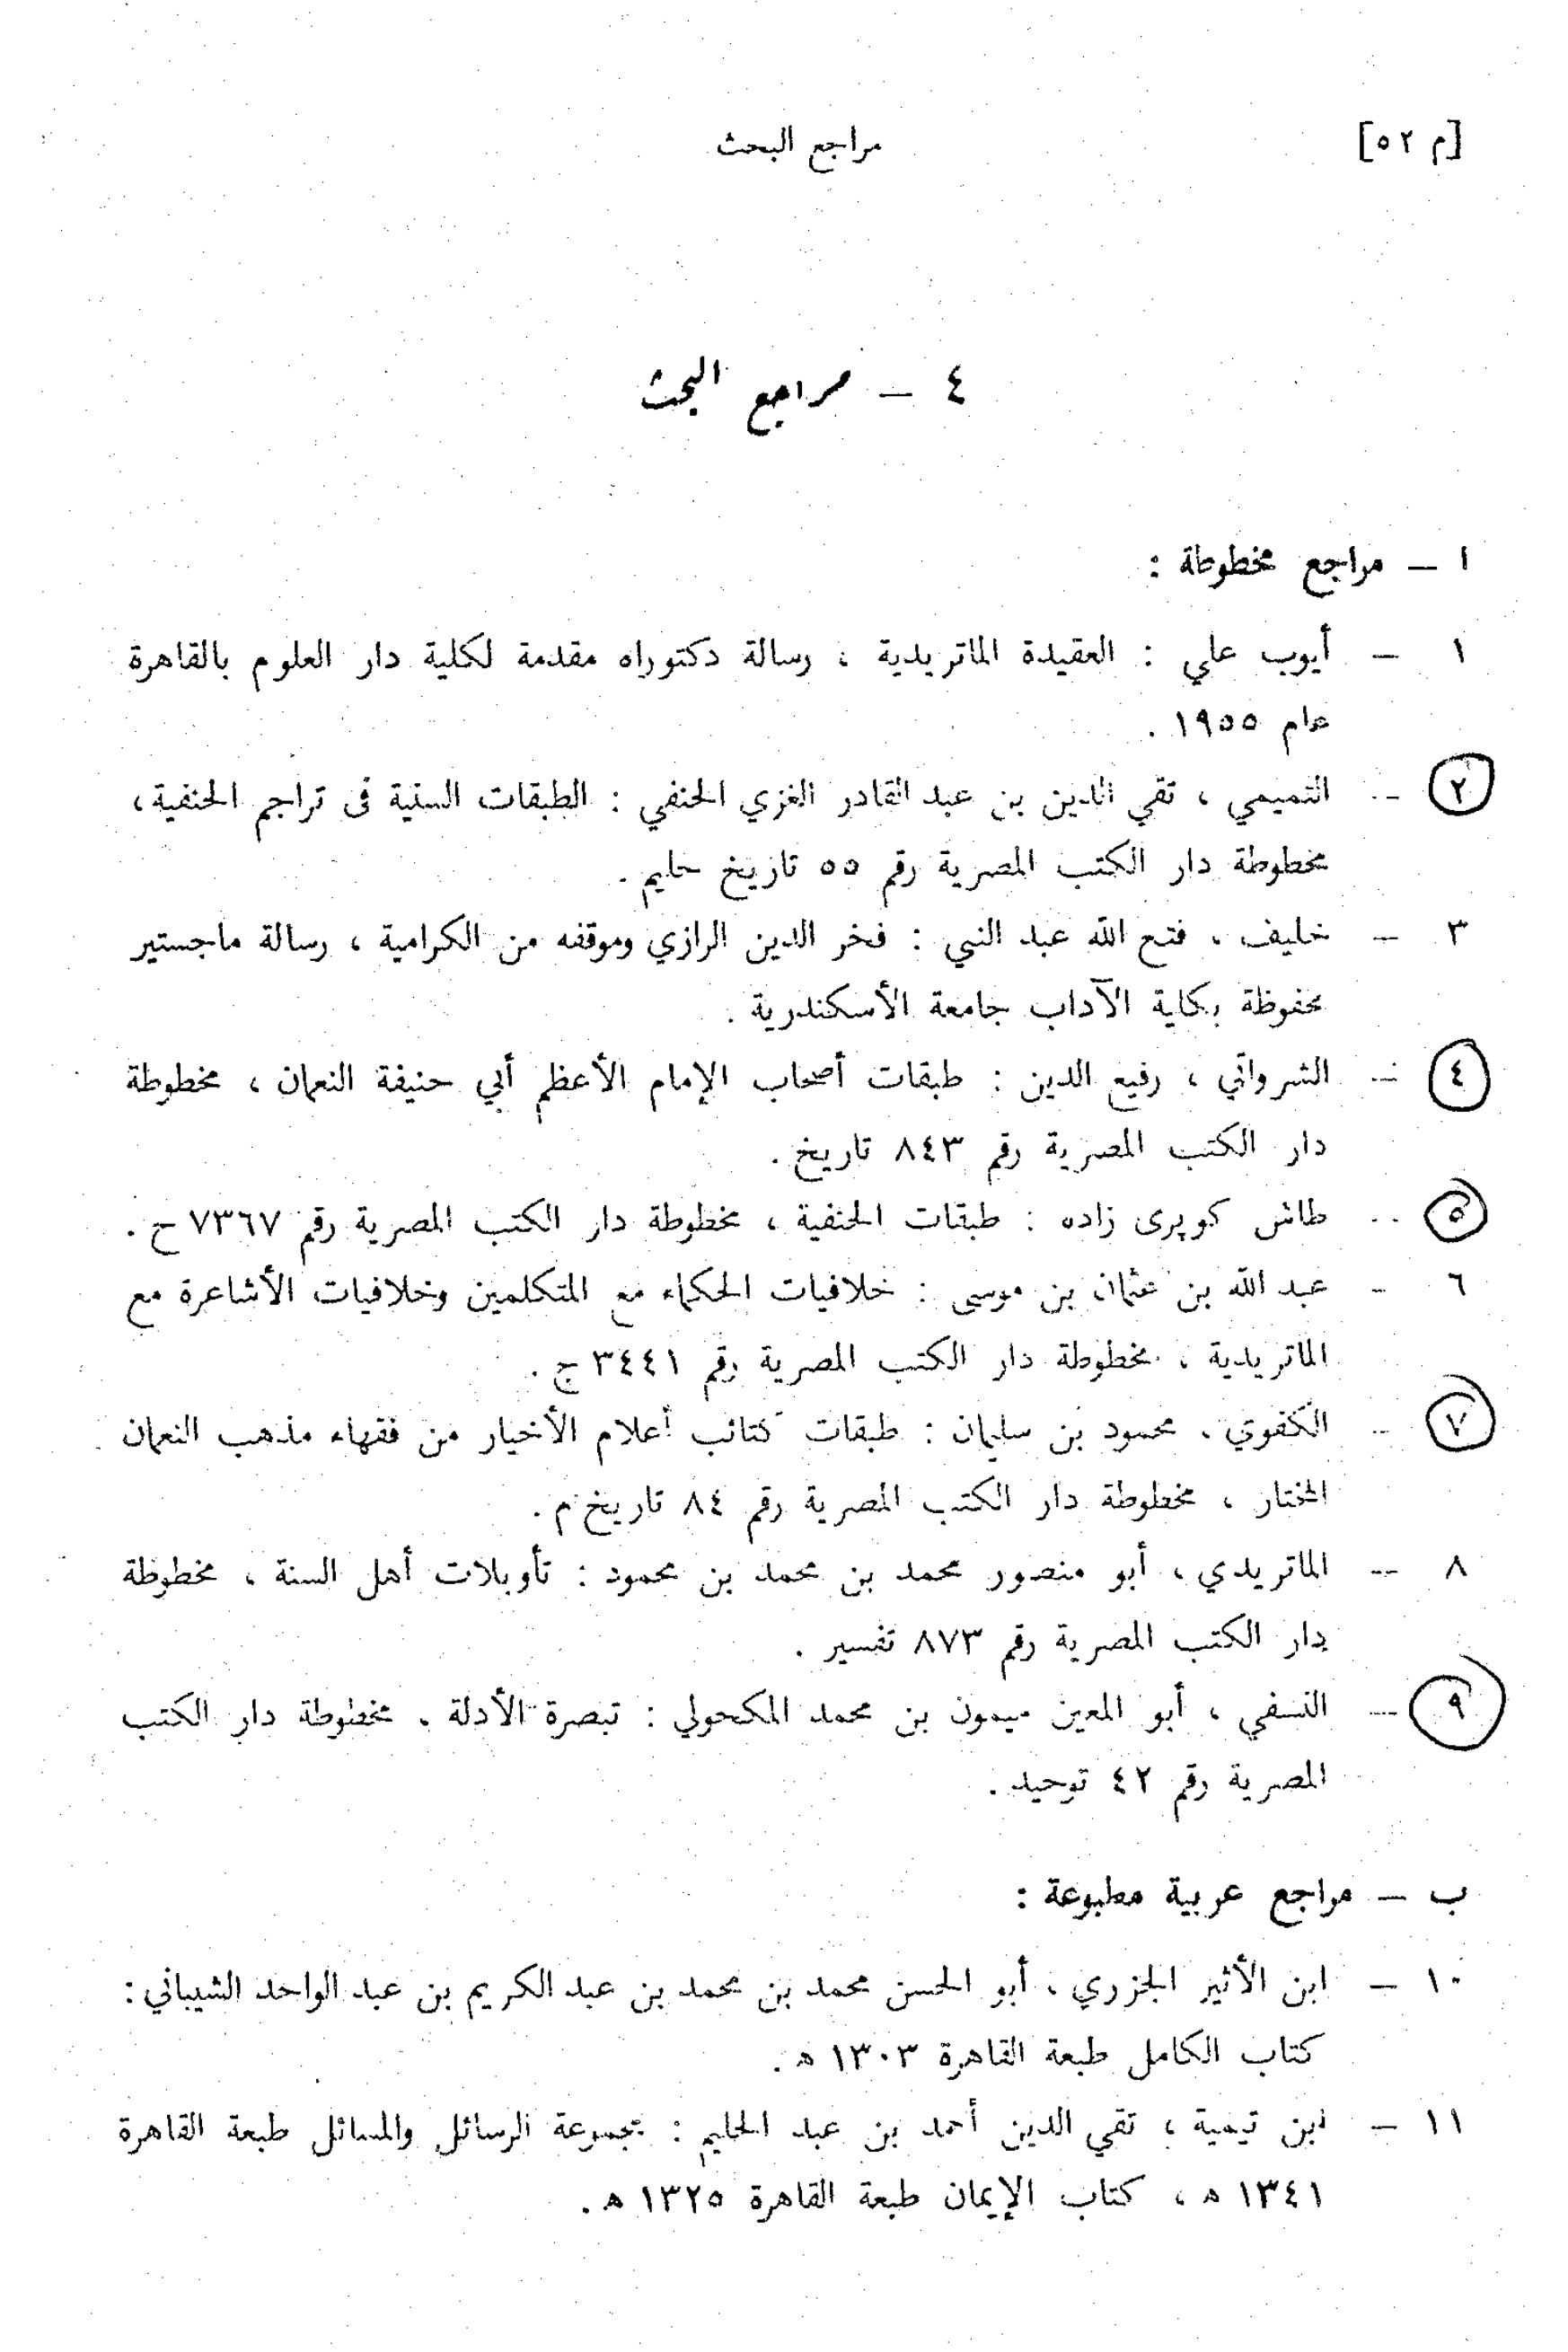 [م ٥٢]
مراجع البحث
٤ — مراجع البحث
ا — مراجع مخطوطة :
١ — أيوب علي : العقيدة الماتريدية ، رسالة دكتوراه مقدمة لكلية دار العلوم بالقاهرة
عام ١٩٥٥ .
٢ — التميمي ، تقي الدين بن عبد القادر الغزي الحنفي : الطبقات السنية فى تراجم الحنفية ،
مخطوطة دار الكتب المصرية رقم ٥٥ تاريخ حليم .
٣ — خليف ، فتح الله عبد النبي : فخر الدين الرازي وموقفه من الكرامية ، رسالة ماجستير
محفوظة بكلية الآداب جامعة الأسكندرية .
٤ — الشرواني ، رفيع الدين : طبقات أصحاب الإمام الأعظم أبي حنيفة النعمان ، مخطوطة
دار الكتب المصرية رقم ٨٤٣ تاريخ .
٥ — طاش كوپرى زاده : طبقات الحنفية ، مخطوطة دار الكتب المصرية رقم ٧٣٦٧ ح .
٦ — عبد الله بن عثمان بن موسى : خلافيات الحكماء مع المتكلمين وخلافيات الأشاعرة مع
الماتريدية ، مخطوطة دار الكتب المصرية رقم ٣٤٤١ ج .
٧ — الكفوي ، محمود بن سليمان : طبقات كتائب أعلام الأخيار من فقهاء مذهب النعمان
المختار ، مخطوطة دار الكتب المصرية رقم ٨٤ تاريخ م .
٨ — الماتريدي ، أبو منصور محمد بن محمد بن محمود : تأويلات أهل السنة ، مخطوطة
دار الكتب المصرية رقم ٨٧٣ تفسير .
٩ — النسفي ، أبو المعين ميمون بن محمد المكحولي : تبصرة الأدلة ، مخطوطة دار الكتب
المصرية رقم ٤٢ توحيد .
ب — مراجع عربية مطبوعة :
١٠ — ابن الأثير الجزري ، أبو الحسن محمد بن محمد بن عبد الكريم بن عبد الواحد الشيباني :
كتاب الكامل طبعة القاهرة ١٣٠٣ ه .
١١ — ابن تيمية ، تقي الدين أحمد بن عبد الحليم : مجموعة الرسائل والمسائل طبعة القاهرة
١٣٤١ ه ، كتاب الإيمان طبعة القاهرة ١٣٢٥ ه .